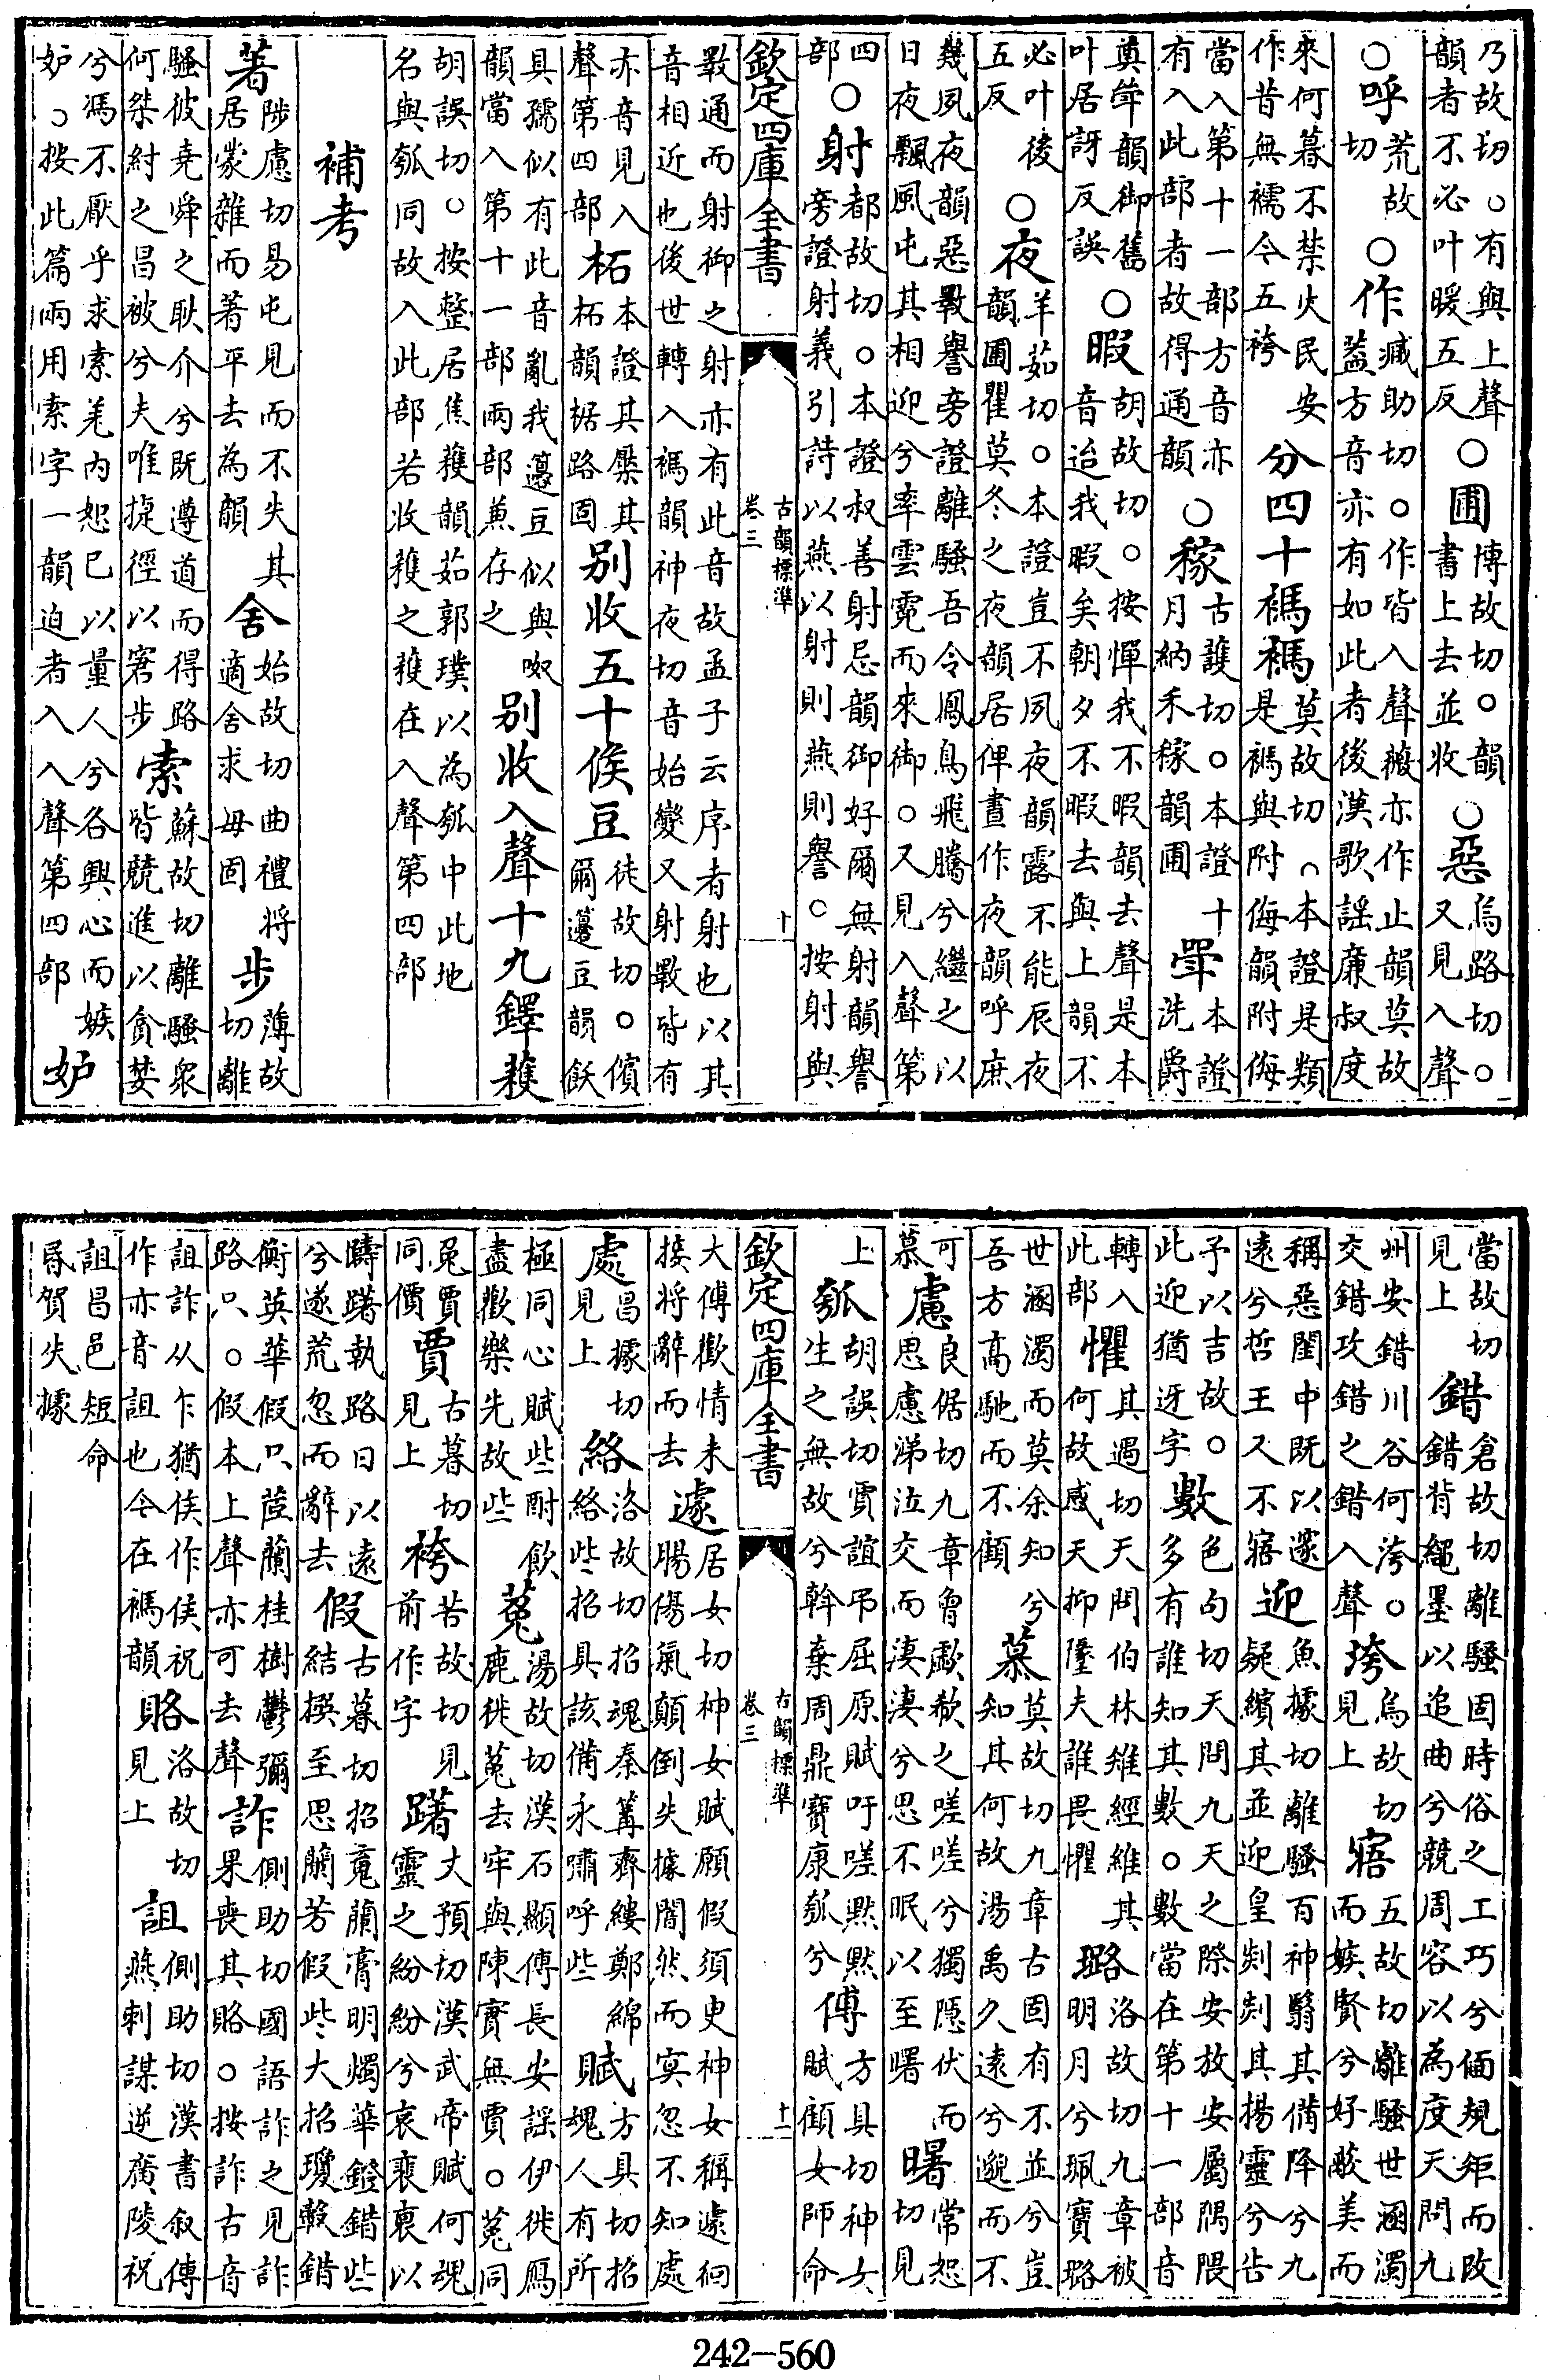 乃故切。有與上聲韻者不必叶暖五反○圃博故切。韻書上去並收○惡烏路切。又見入聲
○呼荒故切○作臧助切。作皆入聲薇亦作止韻莫故蓋方音亦有如此者後漢歌謡廉叔度
來何暮不禁火民安作昔無襦今五袴 分四十禡禡莫故切。本證是類是禡與附侮韻附侮
當入第十一部方音亦有入此部者故得通韻○稼古護切。本證十月納禾稼韻圃 斝本證洗爵
奠斝韻御舊叶居訝反誤○暇胡故切。按憚我不暇韻去聲是本音迨我暇矣朝夕不暇去與上韻不
必叶後五反○夜羊茹切。本證豈不夙夜韻露不能辰夜韻圃瞿莫冬之夜韻居俾晝作夜韻呼庶
幾夙夜韻惡斁譽旁證離騷吾令鳳鳥飛騰兮繼之以日夜飄風屯其相迎兮率雲霓而來御。又見入聲第
四部○射都故切。本證叔善射忌韻御好爾無射韻譽旁證射義引詩以燕以射則燕則譽。按射與
欽定四庫全書 古韻標準 卷三 十
斁通而射御之射亦有此音故孟子云序者射也以其音相近也後世轉入禡韻神夜切音始變又射斁皆有
亦音見入聲第四部 柘本證其檿其柘韻椐路固 别收五十候豆徒故切。儐爾籩豆韻飫
具孺似有此音亂我籩豆似與呶韻當入第十一部兩部兼存之 别收入聲十九鐸穫
胡誤切。按整居焦穫韻茹郭璞以為瓠中此地名與瓠同故入此部若收穫之穫在入聲第四部
補考
著陟慮切易屯見而不失其居蒙雜而著平去為韻 舍始故切曲禮將適舍求毋固 步薄故切離
騷彼堯舜之耿介兮既遵道而得路何桀紂之昌被兮夫唯捷徑以窘步 索蘇故切離騷衆皆競進以貪婪
兮馮不厭乎求索羌内恕已以量人兮各興心而嫉妒。按此篇兩用索字一韻迫者入入聲第四部 妒
當故切見上 錯倉故切離騷固時俗之工巧兮偭規矩而改錯背繩墨以追曲兮競周容以為度天問九
州安錯川谷何洿。交錯攻錯之錯入聲 洿烏故切見上 寤五故切離騷世溷濁而嫉賢兮好蔽美而
稱惡閨中既以邃遠兮哲王又不寤 迎魚據切離騷百神翳其備降兮九疑繽其並迎皇剡剡其揚靈兮告
予以吉故。此迎猶迓字 數色句切天問九天之際安放安屬隅隈多有誰知其數。數當在第十一部音
轉入此部 懼其遇切天問伯林雉經維其何故感天抑墬夫誰畏懼 璐洛故切九章被明月兮珮寶璐
世溷濁而莫余知兮吾方高馳而不顧 慕莫故切九章古固有不並兮豈知其何故湯禹久遠兮邈而不
可慕 慮良倨切九章曾歔欷之嗟嗟兮獨隱伏而思慮涕泣交而淒淒兮思不眠以至曙 曙常恕切見
上 瓠胡誤切賈誼弔屈原賦吁嗟默默生之無故兮斡棄周鼎寶康瓠兮 傅方具切神女賦顧女師命
欽定四庫全書 古韻標準 卷三 十一
大傅歡情未接將辭而去 遽居女切神女賦願假須臾神女稱遽徊腸傷氣顛倒失據闇然而冥忽不知處
處昌據切見上 絡洛故切招魂秦篝齊縷鄭綿絡些招具該備永嘯呼些 賦方具切招魂人有所
極同心賦些酎飲盡歡樂先故些 菟湯故切漢石顯傳長安謡伊徙鴈鹿徙菟去牢與陳實無賈。菟同
兔賈同價 賈古暮切見上 袴苦故切見前作字 躇丈預切漢武帝賦何魂靈之紛紛兮哀裴裏以
躊躇執路日以遠兮遂荒忽而辭去 假古暮切招䰟蘭膏明燭華鐙錯些結撰至思蘭芳假些大招瓊轂錯
衡英華假只茝蘭桂樹鬱彌路只。假本上聲亦可去聲 詐側助切國語詐之見詐果喪其賂。按詐古音
詛詐从乍猶侯作侯祝作亦音詛也今在禡韻 賂洛故切見上 詛側助切漢書叙傳燕剌謀逆廣陵祝
詛昌邑短命昬賀失據
242-560